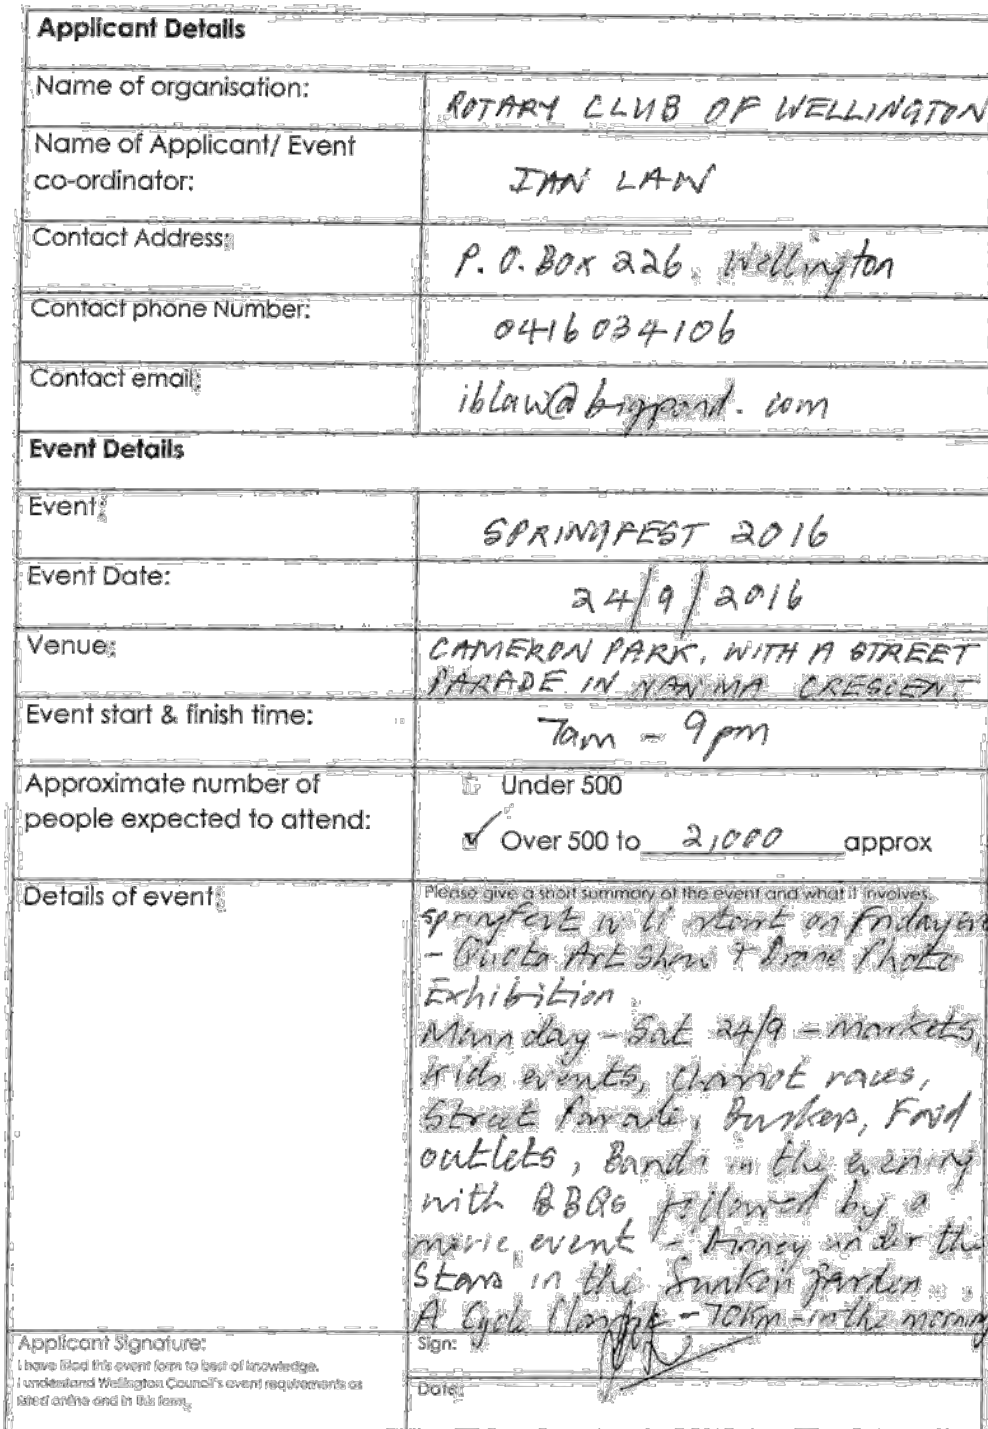 Applicant Details
Name of organisation:
ROTARY CLUB OF WELLINGTON
Name of Applicant/ Event
co-ordinator:
IAN LAW
Contact Address:
P.O. Box 226, Wellington
Contact phone Number:
0416 034 106
Contact email:
iblaw@bigpond.com
Event Details
Event:
SPRINGFEST 2016
Event Date:
24/9/2016
Venue:
CAMERON PARK, WITH A STREET
PARADE IN NANIMA CRESCEN
Event start & finish time:
7am - 9pm
Approximate number of
people expected to attend:
Under 500
Over 500 to 2,000 approx
Details of event:
Please give a short summary of the event and what it involves.
Springfest will start on Friday
- Quota Art Show + Drone Photo
Exhibition
Main day - Sat 24/9 - markets,
kids events, chariot races,
Street Parade, Buskers, Food
outlets, Bands in the evening
with BBQs followed by a
movie event - under the
Stars in the Sunken Garden.
A Cycle - 70km - in the morning
Applicant Signature:
I have filled this event form to best of knowledge.
I understand Wellington Council's event requirements as
listed online and in this form.
Sign:
Date: